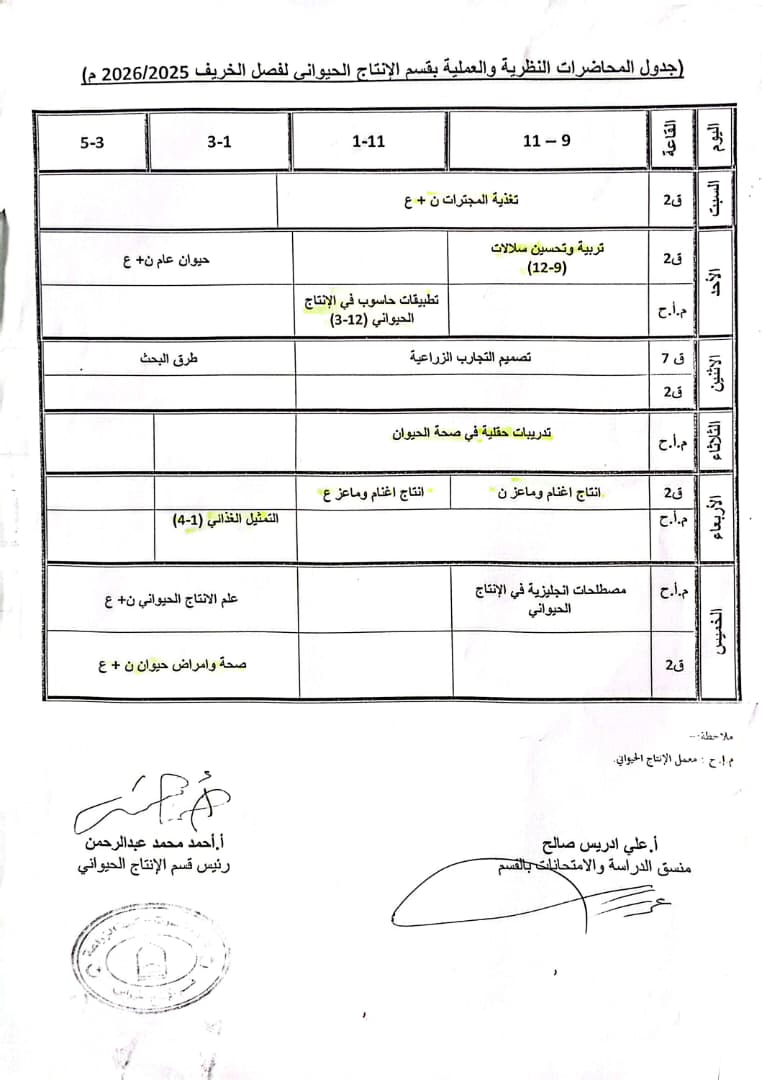 (جدول المحاضرات النظرية والعملية بقسم الإنتاج الحيواني لفصل الخريف 2026/2025 م)
اليوم القاعة 9 – 11 11-1 1-3 3-5
السبت ق2 تغذية المجترات ن + ع
الأحد ق2 تربية وتحسين سلالات حيوان عام ن+ ع
(9-12)
م.أ.ح تطبيقات حاسوب في الإنتاج
الحيواني (12-3)
الاثنين ق 7 تصميم التجارب الزراعية طرق البحث
ق2
الثلاثاء م.أ.ح تدريبات حقلية في صحة الحيوان
الأربعاء ق2 انتاج اغنام وماعز ن انتاج اغنام وماعز ع
م.أ.ح التمثيل الغذائي (1-4)
الخميس م.أ.ح مصطلحات انجليزية في الإنتاج علم الانتاج الحيواني ن+ ع
الحيواني
ق2 صحة وامراض حيوان ن + ع
ملاحظة:--
م.أ.ح : معمل الإنتاج الحيواني.
أ.علي ادريس صالح
منسق الدراسة والامتحانات بالقسم
أ.أحمد محمد عبدالرحمن
رئيس قسم الإنتاج الحيواني